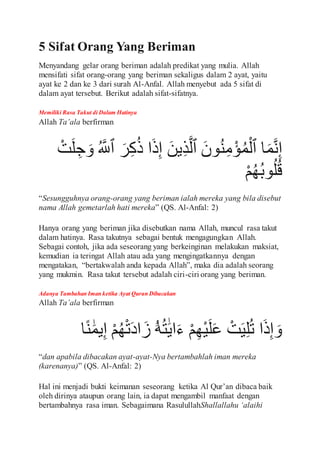 5 Sifat Orang Yang Beriman
Menyandang gelar orang beriman adalah predikat yang mulia. Allah
mensifati sifat orang-orang yang beriman sekaligus dalam 2 ayat, yaitu
ayat ke 2 dan ke 3 dari surah Al-Anfal. Allah menyebut ada 5 sifat di
dalam ayat tersebut. Berikut adalah sifat-sifatnya.
Memiliki Rasa Takut di Dalam Hatinya
Allah Ta’ala berfirman
إِنَّمَا ٱلْمُؤْمِنُونَ ٱلَّذِينَ إِذَا ذُكِرَ ٱللَّهُ وَجِلَتْ
قُلُوبُهُمْ
“Sesungguhnya orang-orang yang beriman ialah mereka yang bila disebut
nama Allah gemetarlah hati mereka” (QS. Al-Anfal: 2)
Hanya orang yang beriman jika disebutkan nama Allah, muncul rasa takut
dalam hatinya. Rasa takutnya sebagai bentuk mengagungkan Allah.
Sebagai contoh, jika ada seseorang yang berkeinginan melakukan maksiat,
kemudian ia teringat Allah atau ada yang mengingatkannya dengan
mengatakan, “bertakwalah anda kepada Allah”, maka dia adalah seorang
yang mukmin. Rasa takut tersebut adalah ciri-ciri orang yang beriman.
Adanya Tambahan Iman ketika Ayat Quran Dibacakan
Allah Ta’ala berfirman
وَإِذَا تُلِيَتْ عَلَيْهِمْ ءَايَٰتُهُۥ زَادَتْهُمْ إِيمَٰنًا
“dan apabila dibacakan ayat-ayat-Nya bertambahlah iman mereka
(karenanya)” (QS. Al-Anfal: 2)
Hal ini menjadi bukti keimanan seseorang ketika Al Qur’an dibaca baik
oleh dirinya ataupun orang lain, ia dapat mengambil manfaat dengan
bertambahnya rasa iman. Sebagaimana RasulullahShallallahu ‘alaihi